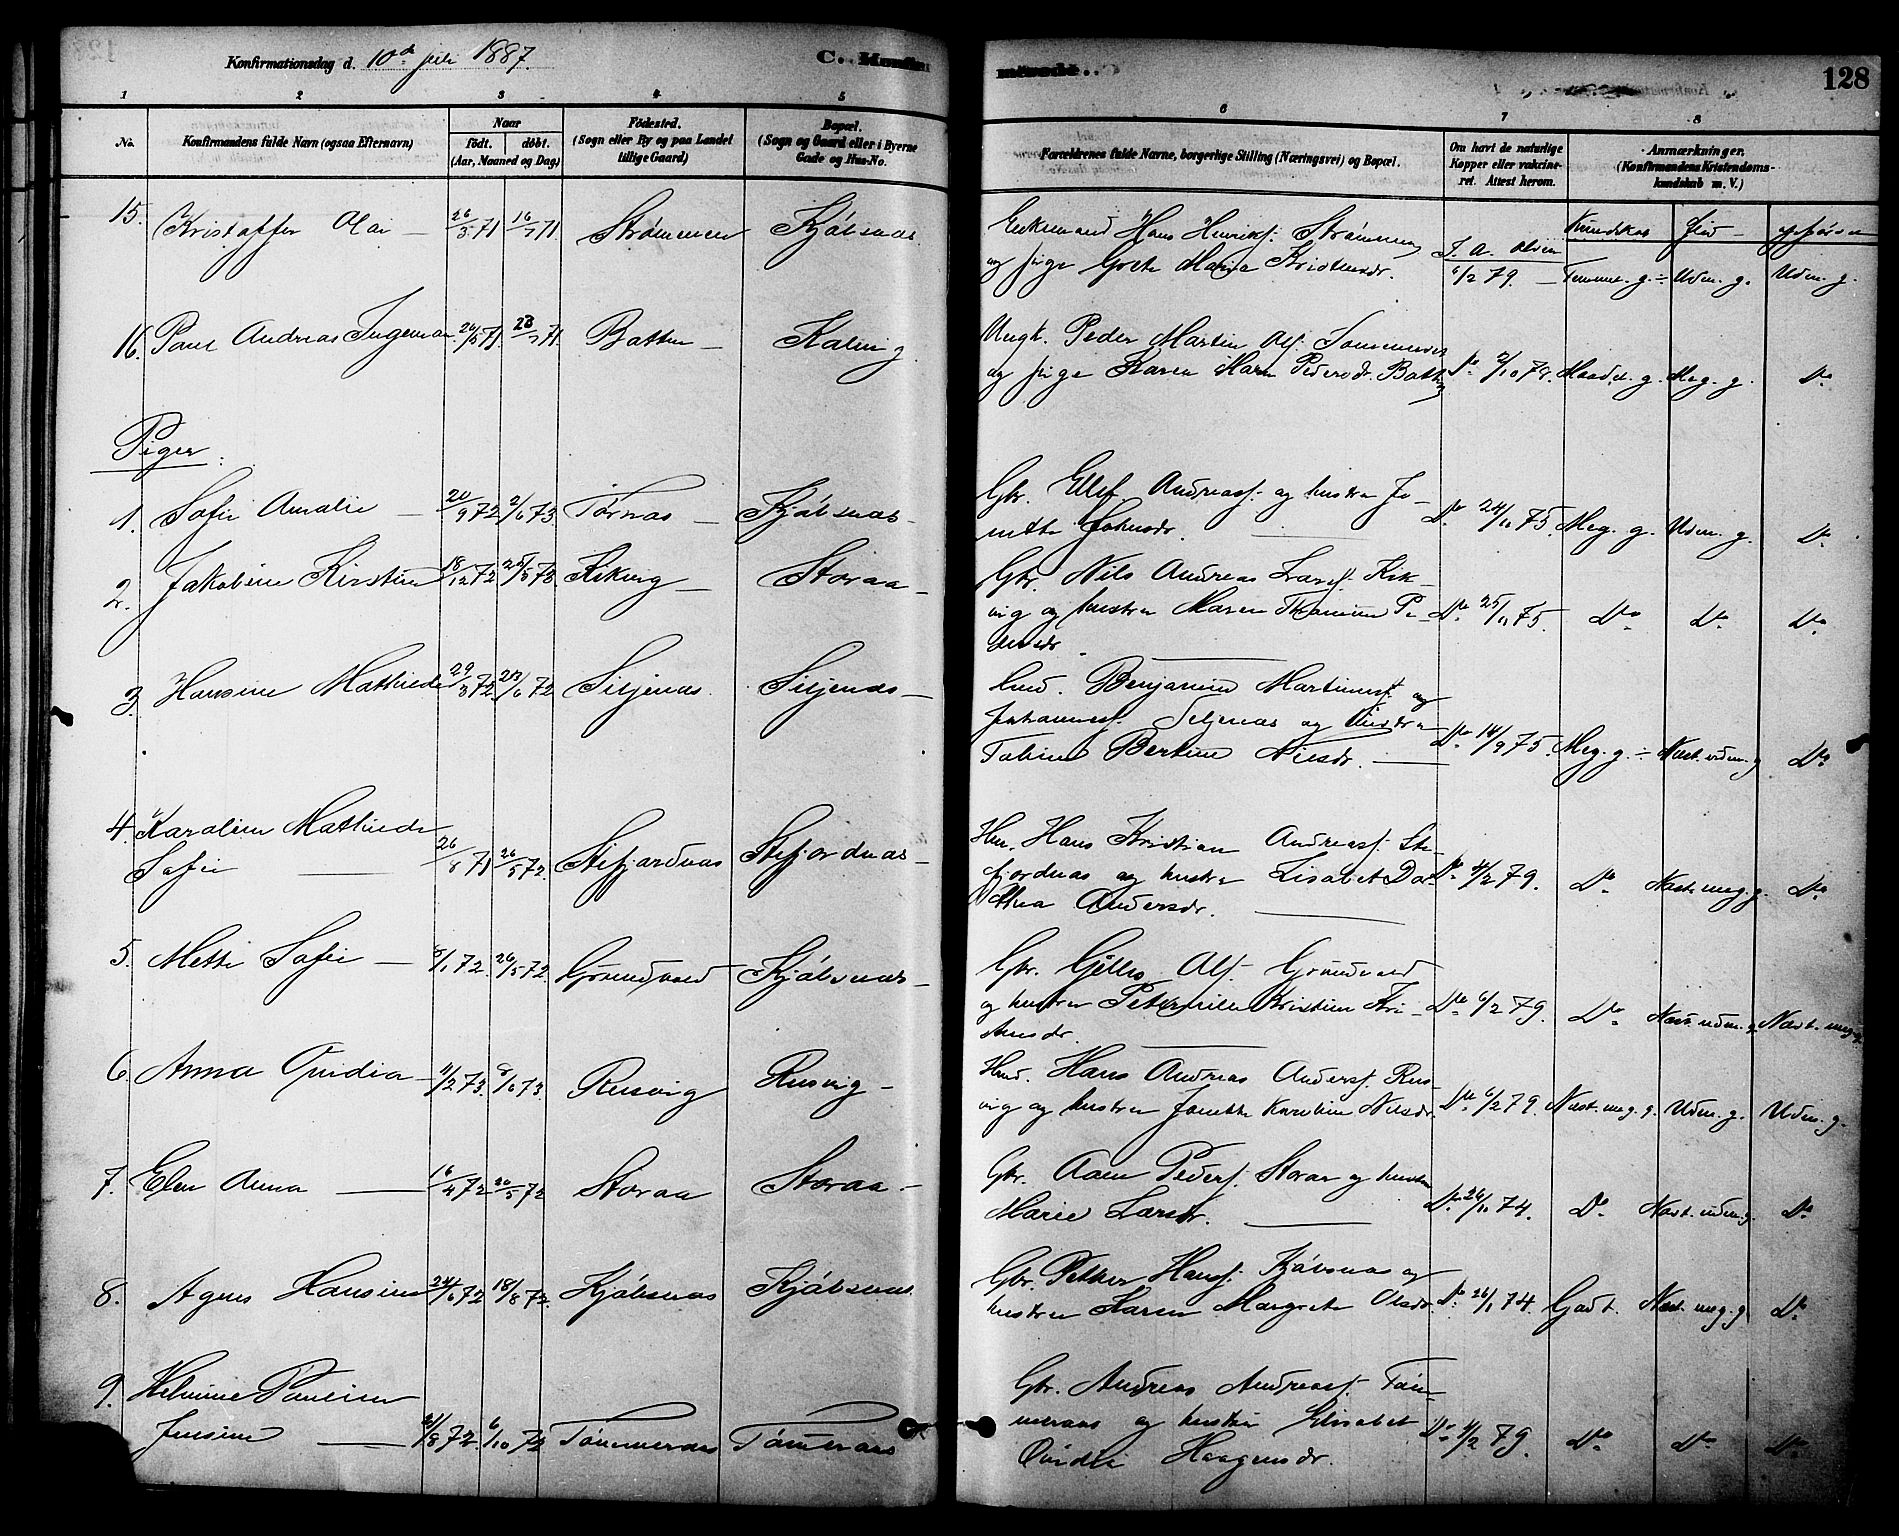 Konfirmationsdag d. 10de juli 1887.
C. Konfir
mirede
128
1 2 3 4 5
6 7 8
No.
Konfirmandens fulde Navn (ogsaa Efternavn)
Naar
födt. döbt.
(Aar, Maaned og Dag)
Födested.
(Sogn eller By og paa Landet
tillige Gaard)
Bopæl.
(Sogn og Gaard eller i Byerne
Gade og Hus-No.
Forældrenes fulde Navne, borgerlige Stilling (Næringsvei) og Bopæl.
Om havt de naturlige
Kopper eller vakcine-
ret. Attest herom.
Anmærkninger.
(Konfirmandens Kristendoms-
kundskab m. V.)
Kundskab Flid
15. Kristoffer Olai — 26/5 71 16/7 71 Strömmen Kjöbsnæs
Enkemand Hans Henriks. Strömmen
og pige Grete Maria Kristensdr.
J. A. Olsen
6/2 79. Temmel. g. ÷ Udm. g. Udm. g.
16. Paul Andreas Ingeman 26/5 71 23/7 71 Batten — Kalvig
Ungk. Peder Martin Ols. Sommerset
og pige Karen Maria Pedersdr. Batten
Do 2/10 78. Maadel. g. Meg. g. Do
Piger.
1. Sofie Amalie — 20/9 72 2/6 73 Törnæs — Kjöbsnæs —
Gbr. Ellef Andreass. og hustru Jo-
nette Johnsdr.
Do 24/11 75. Meg. g. Udm. g. Do
2. Jakobine Kirstine 18/12 72 25/5 73 Kikvig — Storaa —
Gbr. Nils Andreas Larss. Kik-
vig og hustru Maren Pe-
dersdr.
Do 25/11 75. Do Do Do
3. Hansine Mathilde 29/3 72 23/6 72 Siljenæs. Siljenæs —
Hmd. Benjamin Martinus og
Johanness. Seljenæs og hustru
Tobine Bertine Nilsdr. —
Do 14/9 75. Meg. g. ÷ Næst. udm. g Do
4. Karoline Mathilde
Sofie — 26/8 71 26/5 72. Stefjordnæs Stefjordnæs —
Hm. Hans Kristian Andreass. Ste-
fjordnæs og hustru Lisabet Do-
rthea Andersdr. —
Do 4/2 79. Do Næst. meg. g. Do
5. Mette Sofie — 8/1 72. 26/5 72. Grundvold — Kjöbsnæs —
Gbr. Gjells Ols. Grundvold
og hustru Petternille Kristine Kri-
stensdr. —
Do 6/2 79. Do Næst. udm. g. Næst. meg. g.
6. Anna Qvidia — 11/2 73. 8/6 73. Rusvig Rusvig —
Hmd. Hans Andreas Anders. Rus-
vig og hustru Jonette Karoline Nilsdr.
Do 6/2 79. Næst. meg. g. Udm. g. Udm. g.
7. Elen Anna — 16/4 72 20/5 72 Storaa Storaa —
Gbr. Aaen Peders. Storaa og hustru
Marie Larsdr. —
Do 26/11 74. Do Næst. udm. g. Do
8. Agnes Hansine 24/6 72 18/8 72. Kjöbsnæs Kjöbsnæs
Gbr. Petter Hans. Kjöbsnæs og
hustru Karen Margrete Olsdr.
Do 26/1 74. Godt. Næst. meg. g. Do
9. Helmine Pauline
Jensine — 21/8 72. 6/10 72 Tömmernæs Tömmernæs
Gbr. Andreas Andreass. Töm-
mernæs og hustru Elisabet
Qvidia Haagensdr.
Do 4/2 79. Do Do Do